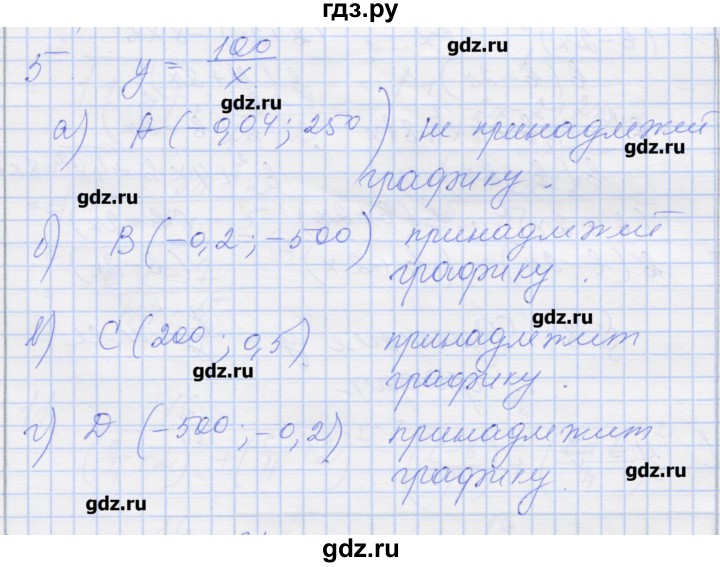 гдз.ру
5. y = 100/x
gdz.ru
gdz.ru
а) A (-0,04; 250) не принадлежит
gdz.ru
графику.
gdz.ru
б) B (-0,2; -500) принадлежит
графику.
gdz.ru
в) C (200; 0,5) принадлежит
gdz.ru
графику.
г) D (-500; -0,2) принадлежит
графику.
gdz.ru
gdz.ru
gdz.ru